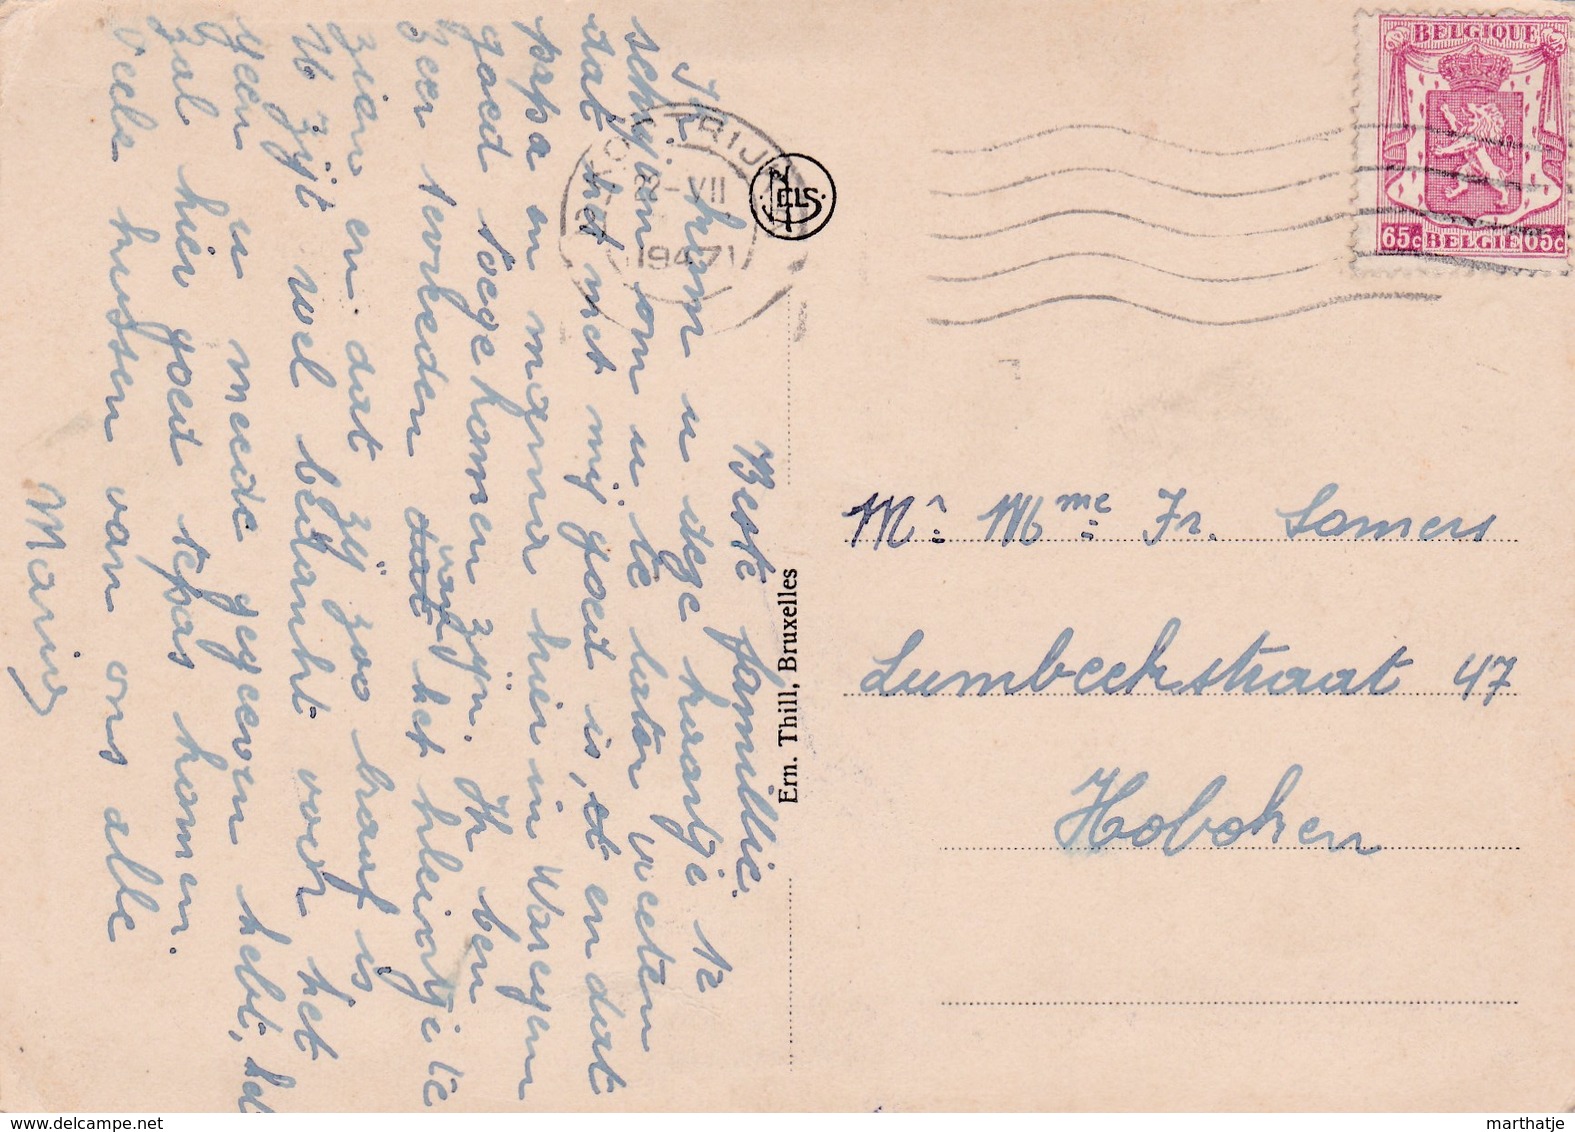 Beste familie.
Ik kom u deze kaartje
schrijven om u te laten weeten
dat het met mij goed is, et en dat
papa en mama hier in Waregem
goed toegekomen zijn. Ik ben
zeer tevreden dat van het kleintje te
zien en dat zij zoo braaf is
U zijt wel bedankt voor het
geen u meede gegeeven hebt, het
zal hier goed te pas komen.
Veele kussen van ons alle
Maria
KORTRIJK
22-VII
1947
NELS
Ern. Thill, Bruxelles
BELGIQUE
65c BELGIE 65c
Mr. Mme Fr. Somers
Lumbeekstraat 47
Hoboken
marthatje